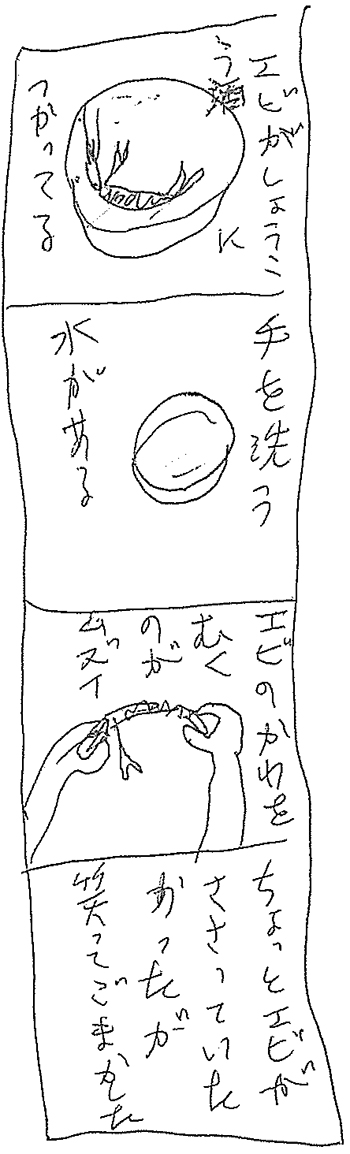 エビがしょうこ
う
に
つかってる
手を洗う
水がある
エビのかわを
むく
のが
ムズイ
ちょっとエビが
ささっていた
かったが
笑ってごまかした